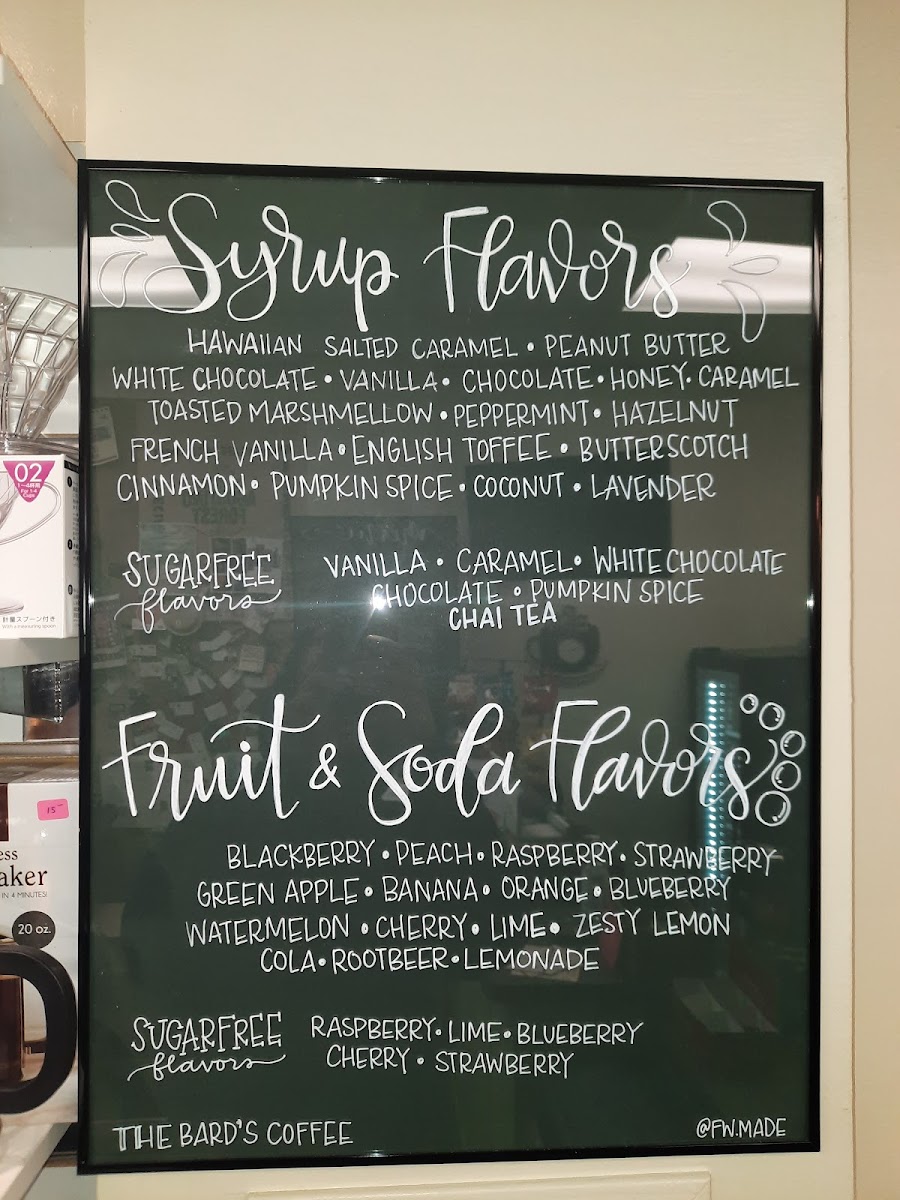 Syrup Flavors
HAWAIIAN SALTED CARAMEL • PEANUT BUTTER
WHITE CHOCOLATE • VANILLA • CHOCOLATE • HONEY • CARAMEL
TOASTED MARSHMELLOW • PEPPERMINT • HAZELNUT
FRENCH VANILLA • ENGLISH TOFFEE • BUTTERSCOTCH
CINNAMON • PUMPKIN SPICE • COCONUT • LAVENDER
SUGARFREE
flavors
VANILLA • CARAMEL • WHITE CHOCOLATE
CHOCOLATE • PUMPKIN SPICE
CHAI TEA
Fruit & Soda Flavors
BLACKBERRY • PEACH • RASPBERRY • STRAWBERRY
GREEN APPLE • BANANA • ORANGE • BLUEBERRY
WATERMELON • CHERRY • LIME • ZESTY LEMON
COLA • ROOTBEER • LEMONADE
SUGARFREE
flavors
RASPBERRY • LIME • BLUEBERRY
CHERRY • STRAWBERRY
THE BARD'S COFFEE
@FW.MADE
02
For 1-4
Cups
計量スプーン付き
With a measuring spoon
15
ess
aker
IN 4 MINUTES!
20 oz.